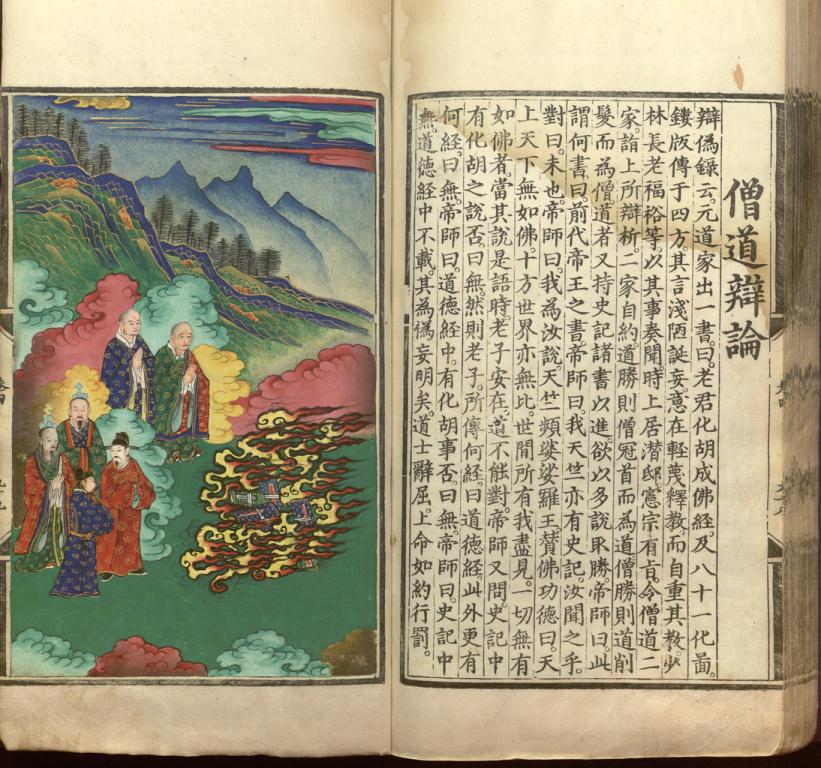 僧道辯論
辯偽錄云。元道家出一書。曰老君化胡成佛經。及八十一化圖。
鏤版傳于四方。其言淺陋誕妄。意在輕蔑釋教。而自重其教。少
林長老福裕等。以其事奏聞。時上居潛邸。憲宗有旨。令僧道二
家。詣上所辯析。二家自約。道勝則僧冠首而為道。僧勝則道削
髮而為僧。道者又持史記諸書以進。欲以多說取勝。帝師曰。此
謂何書。曰。前代帝王之書。帝師曰。我天竺亦有史記。汝聞之乎。
對曰。未也。帝師曰。我為汝說。天竺頻婆娑羅王。贊佛功德曰。天
上天下無如佛。十方世界亦無比。世間所有我盡見。一切無有
如佛者。當其說是語時。老子安在。道不能對。帝師又問。史記中
有化胡之說否。曰。無。然則老子。所傳何經。曰。道德經。此外更有
何經。曰。無。帝師曰。道德經中。有化胡事否。曰。無。帝師曰。史記中
無。道德經中不載。其為偽妄明矣。道士辭屈。上命如約行罰。